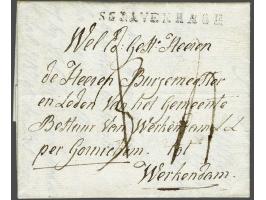 SGRAVENHAGE
Wel Ed: Gest: Heeren
de Heeren Burgemeester
en Leden van het Gemeente
Bestuur van Werkendam
per Gorinchem. tot
Werkendam.